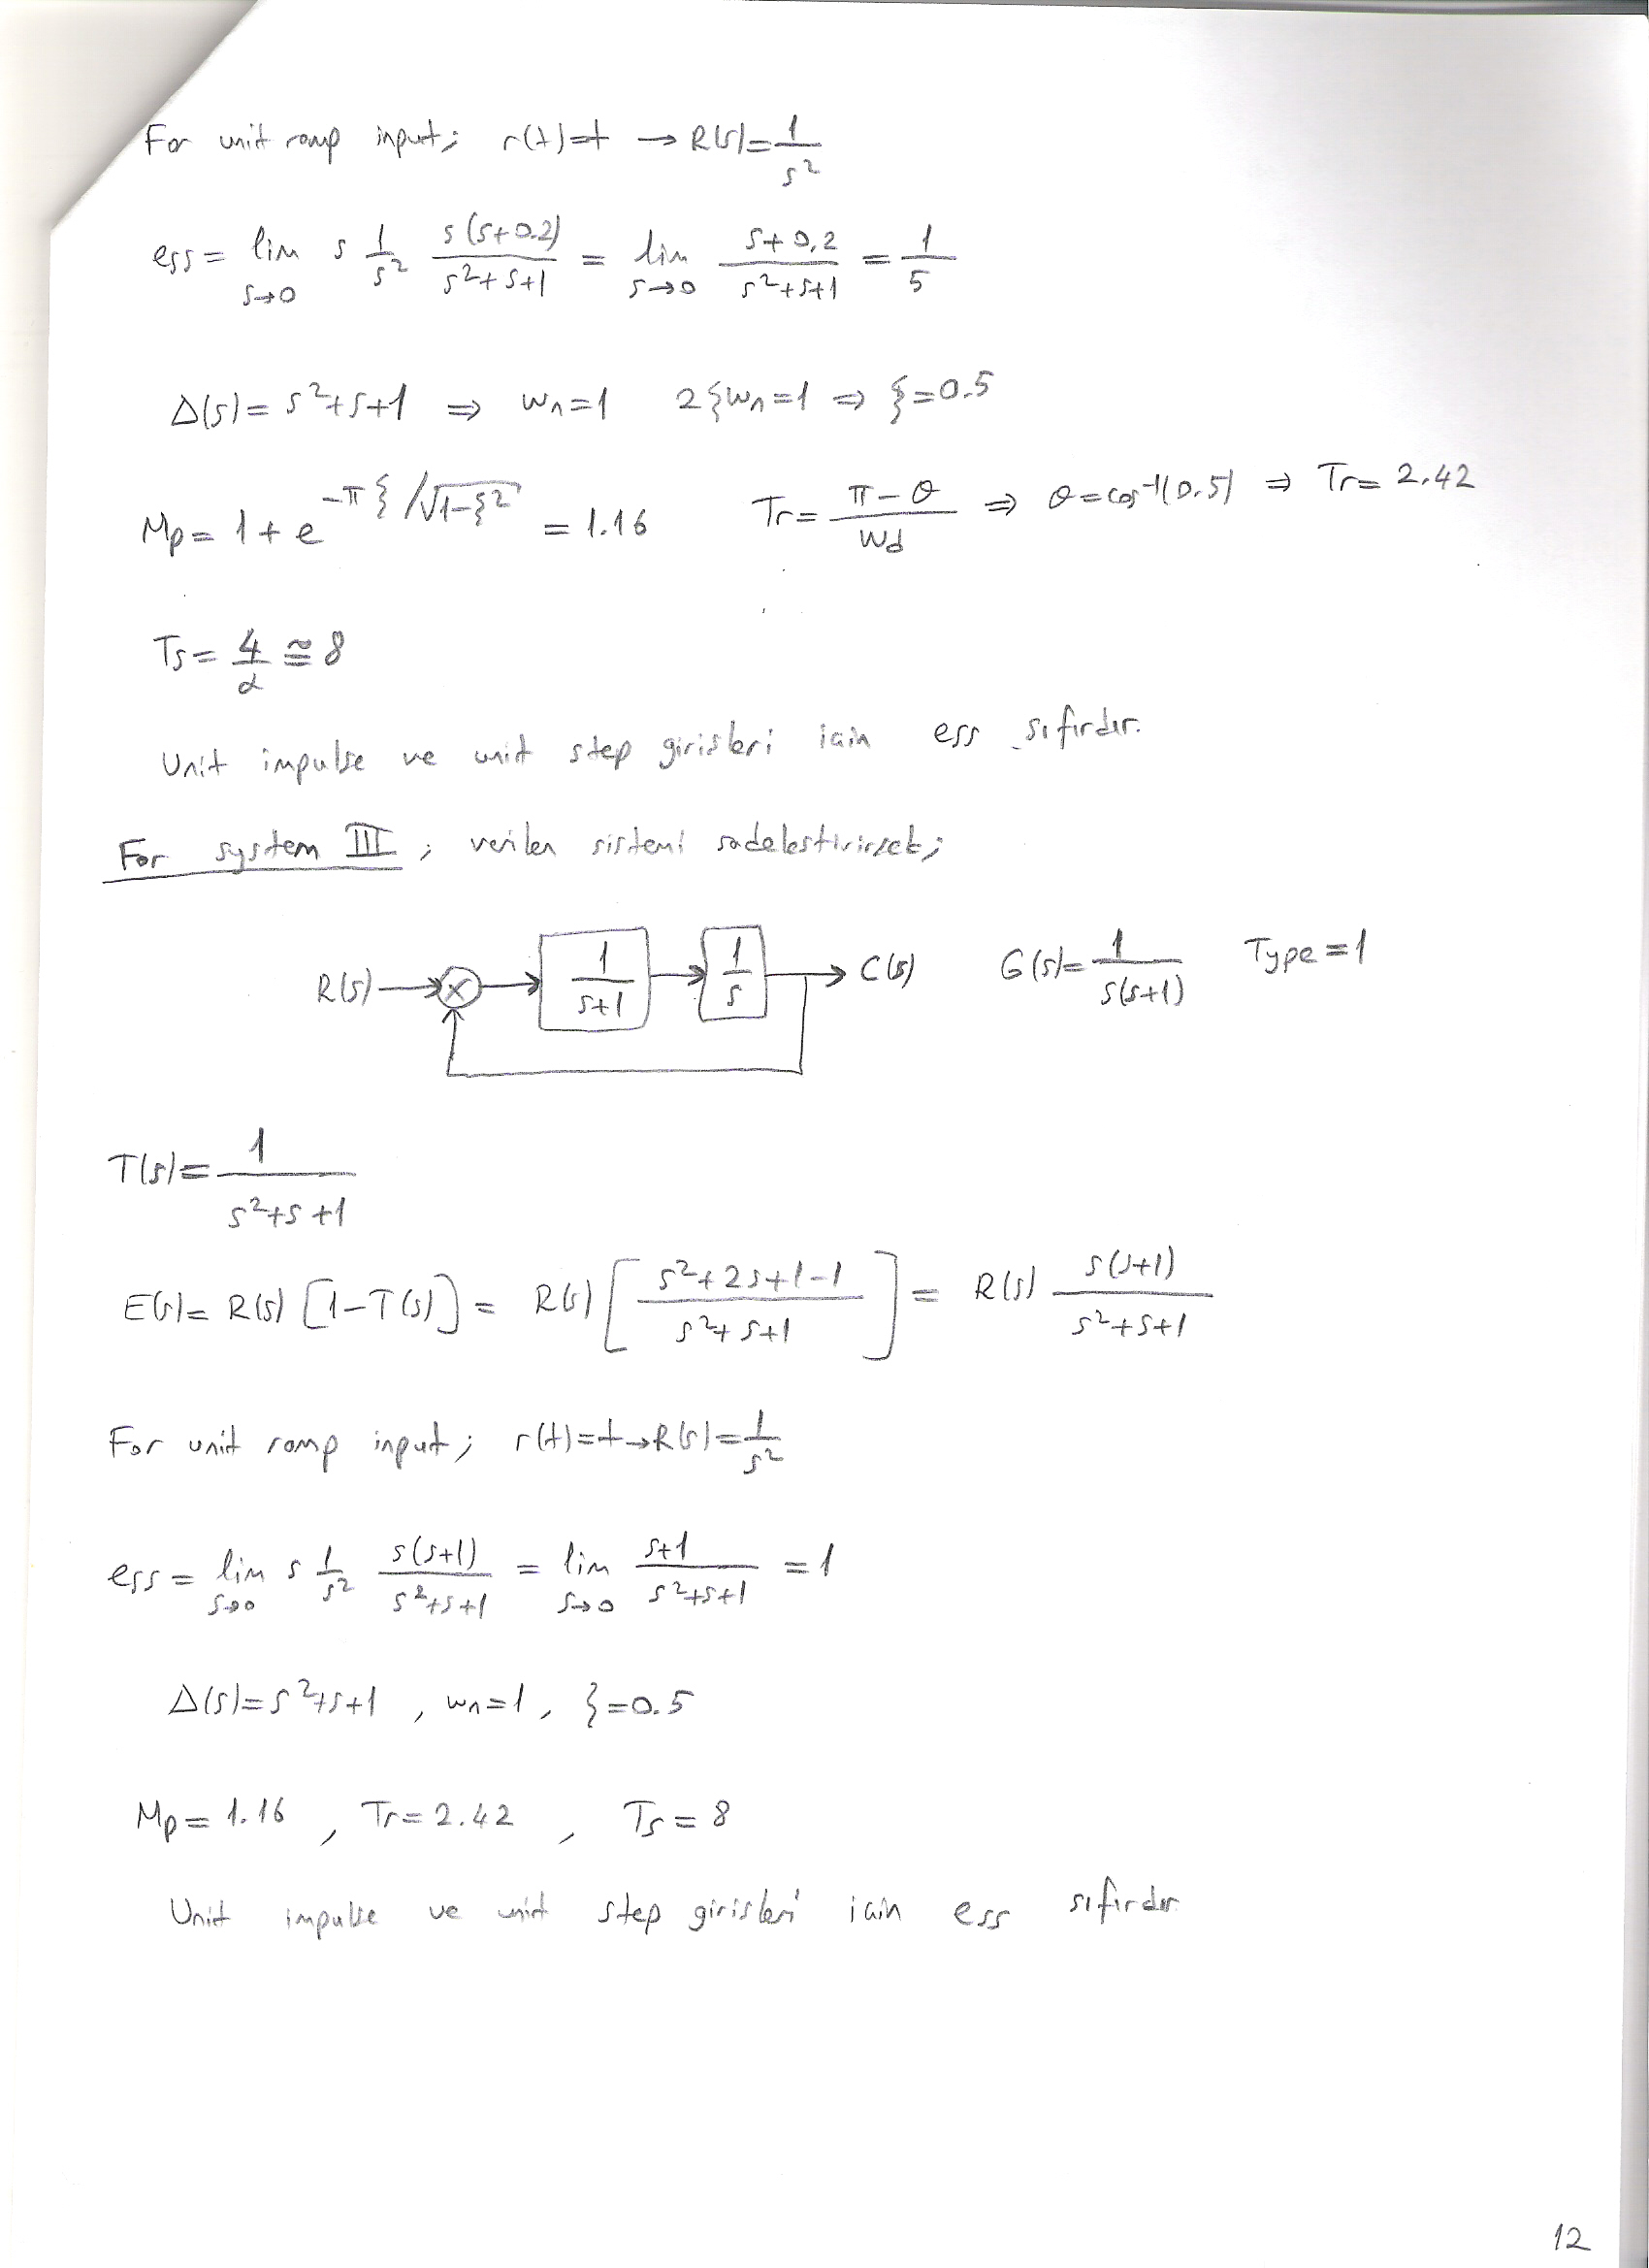 For unit ramp input; r(t)=t → R(s)=1/s²
ess = lim s→0 s 1/s² s(s+0.2)/s²+s+1 = lim s→0 s+0,2/s²+s+1 = 1/5
Δ(s)= s²+s+1 ⇒ ωn=1 2ξωn=1 ⇒ ξ=0.5
Mp= 1+e^-πξ/√1-ξ² = 1.16 Tr= π-θ/ωd ⇒ θ=cos⁻¹(0.5) ⇒ Tr= 2.42
Ts= 4/α ≅ 8
Unit impulse ve unit step girisleri icin ess sıfırdır.
For system III ; verilen sistemi sadelestirirsek;
R(s) X 1/s+1 1/s C(s) G(s)= 1/s(s+1) Type=1
T(s)= 1/s²+s+1
E(s)= R(s) [1-T(s)] = R(s) [s²+2s+1-1/s²+s+1] = R(s) s(s+1)/s²+s+1
For unit ramp input; r(t)=t→R(s)=1/s²
ess = lim s→0 s 1/s² s(s+1)/s²+s+1 = lim s→0 s+1/s²+s+1 = 1
Δ(s)=s²+s+1 , ωn=1, ξ=0.5
Mp= 1.16 , Tr= 2.42 , Ts = 8
Unit impulse ve unit step girisleri icin ess sıfırdır
12